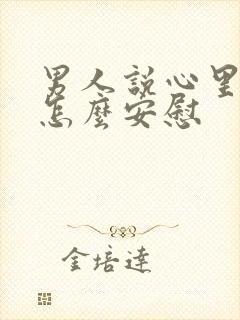 男人說心里
怎麼安慰
金培達